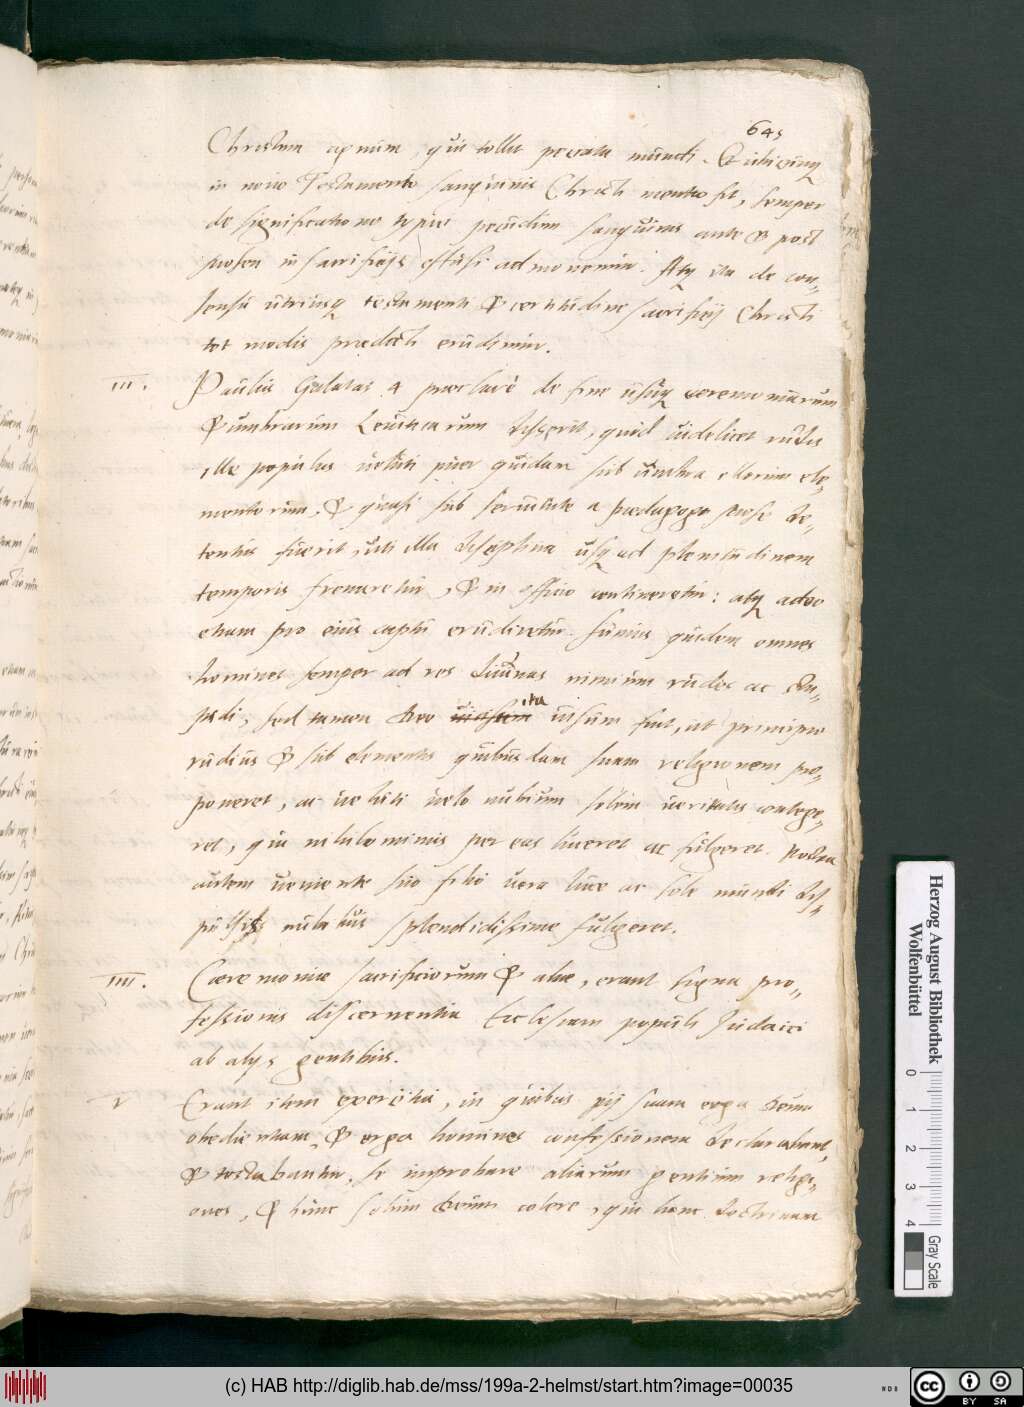 645
Christum agnum, qui tollit peccata mundi. Quicunq
in nouo Testamento sanguinis Christi mentio fit, semper
de significatione typici pecudum sanguinis ante & post
Mosen in sacrificijs effusi admonemur. Atq ita de con„
sensu utriusq testamenti & certitudine sacrificij Christi
tot modis praedicti erudimur.
III. Paulus Galatas 4 praeclarè de fine usuq ceremoniarum
& umbrarum Leuiticarum disserit, quid uidelicet rudis
ille populus ueluti puer quidam sub umbra illorum ele„
mentorum, & quasi sub seruitute a paedagogo Mose de„
tentus fuerit, uti illa disciplina usq ad plenitudinem
temporis frenaretur, & in officio contineretur: atq adeo
etiam pro eius captu erudiretur. Sumus quidem omnes
homines semper ad res diuinas nimium rudes ac stu„
pidi, sed tamen deo ita uisum fuit, ut principio
rudius & sub elementis quibusdam suam religionem pro„
poneret, ac ueluti uelo nubium solem ueritatis contege„
ret, qui nihilominus per eas luceret ac fulgeret. Postea
autem ueniente suo filio uera luce ac sole mundi dis„
pulsis nubibus splendidissime fulgeret.
IIII. Caeremoniae sacrificiorum & aliae, erant signa pro„
fessionis discernentia Ecclesiam populi Iudaici
ab alijs gentibus.
V Erant item exercitia, in quibus pij suam erga deum
obedientiam, & erga homines confessionem declarabant,
& testabantur, se improbare aliarum gentium religi„
ones, & hunc solum deum colere, qui hanc doctrinam
Herzog August Bibliothek
Wolfenbüttel
0 1 2 3 4
Gray Scale
(c) HAB http://diglib.hab.de/mss/199a-2-helmst/start.htm?image=00035
cc BY SA